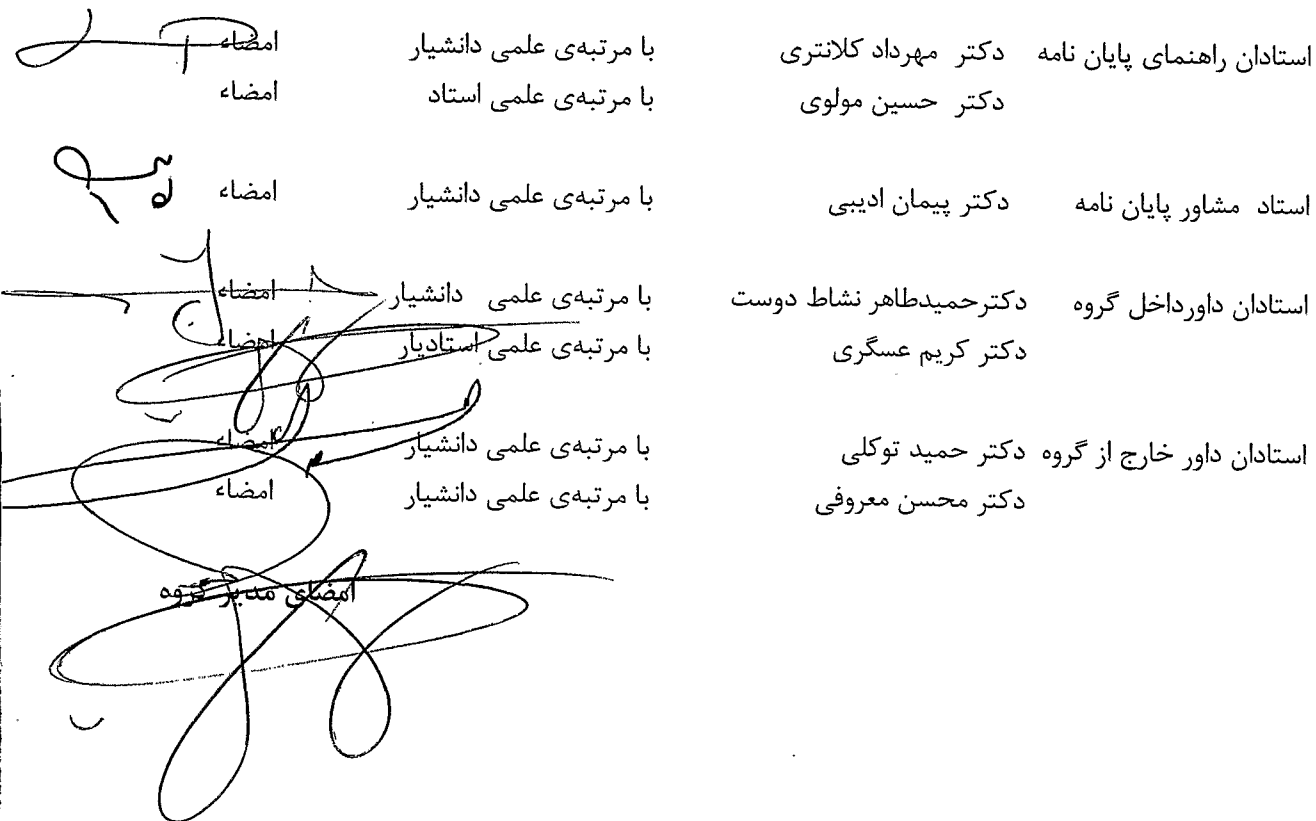 استادان راهنمای پایان نامه دکتر مهرداد کلانتری با مرتبه‌ی علمی دانشیار امضاء
دکتر حسین مولوی با مرتبه‌ی علمی استاد امضاء
استاد مشاور پایان نامه دکتر پیمان ادیبی با مرتبه‌ی علمی دانشیار امضاء
استادان داورداخل گروه دکترحمیدطاهر نشاط دوست با مرتبه‌ی علمی دانشیار امضاء
دکتر کریم عسگری با مرتبه‌ی علمی استادیار امضاء
استادان داور خارج از گروه دکتر حمید توکلی با مرتبه‌ی علمی دانشیار امضاء
دکتر محسن معروفی با مرتبه‌ی علمی دانشیار امضاء
امضای مدیر گروه